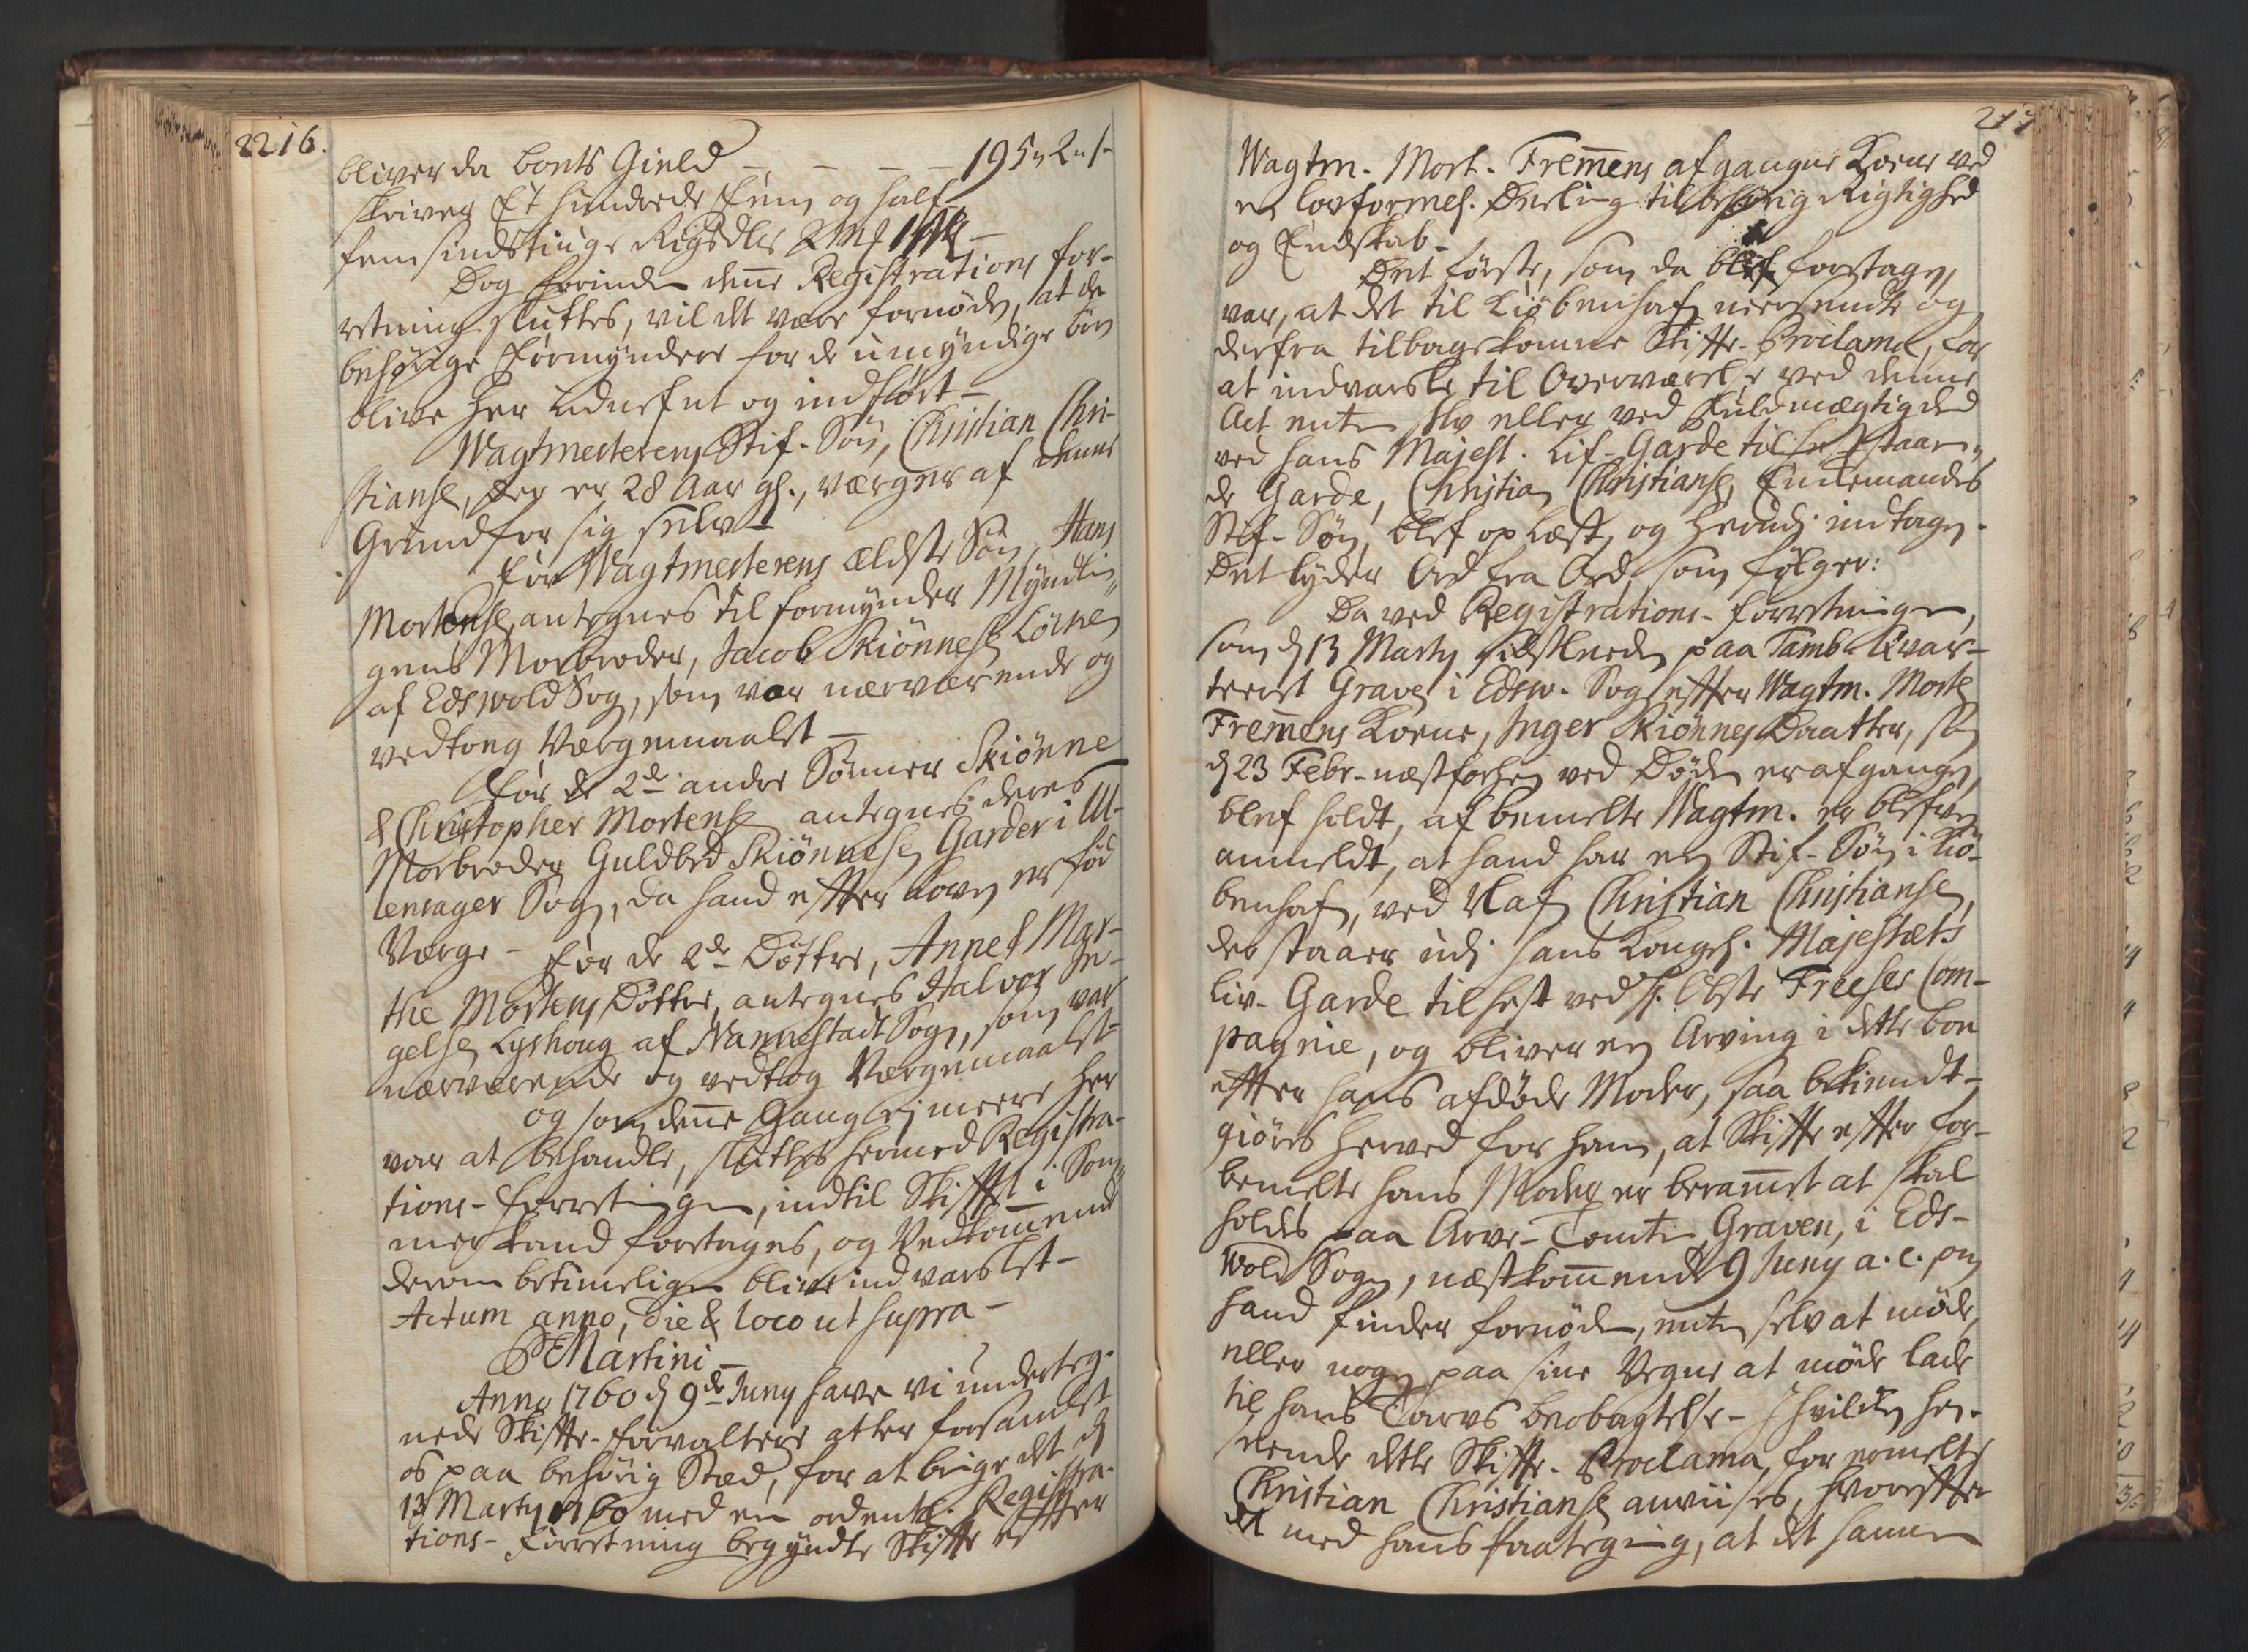 2216.
bliver da boets Gield - - - - 195 „ 2 „ 1-
skriver Et hundrede fem og half-
femsindstiuge Rigsdlr 2 Mk 1 sk -
Dog forinden denne Registrations for-
retning sluttes, vil det være fornøden, at de
behørige Formyndere for de umyndige børn
blive her udnefnt og indført -
Wagtmesterens Stif-Søn, Christian Chri-
stiansen, der er 28 Aar gl., værger af denne
Grund for sig selv -
For Wagtmesterens ældste Søn, Hans
Mortensen, antegnes til formynder Myndlin„
gens Morbroder, Jacob Skiønnesen Løcke
af Edswold Sogn, som var nærværende og
vedtoeg Værgemaalet -
For de 2de andre Sønner Skiønne
& Christopher Mortensen antegnes deres
Morbroder Guldbrd Skiønnesen Garder i Ul-
lensager Sogn, da hand efter Loven er fød
Værge - For de 2de Døttre, Anne & Mar-
the Mortens Døttre, antegnes Halvor In-
gelsen Lyshoug af Nannestad Sogn, som var
nærværende og vedtog Værgemaalet-
og som denne Gang ej meere her
var at behandle, sluttes hermed Registra-
tions-Forretningen, indtil Skiftet i Som„
mer kand foretages, og Vedkommende
derom betimeligen blive indvarslet -
Actum anno, die & loco ut supra -
P Martini -
Anno 1760 d 9de Juny have vi underteg-
nede Skifte-Forvaltere atter forsamlet
os paa behørig Stæd, for at bringe det d
13 Marty 1760 med en ordentl. Registra-
tions-Forretning begyndte Skifte efter
217
Wagtm. Mort. Fremmens afgangne Kone ved
en lovformel. Deeling til behørig Rigtighed
og Endskab -
Det første, som da blef foretagen,
var, at det til Kiøbenhafn neersendte og
derfra tilbagekomne Skifte-Proclama, for
at indvarsle til Overværelse ved denne
Act enten selv eller ved Fuldmægtig den
ved hans Majest. Lif-Garde til hest staaen„
de Garde, Christian Christiansen, Enkemandes
Stif-Søn, blef oplæst, og herudi indtagen.
Det lyder Ord fra Ord, som følger:
Da ved Registrations-Forretningen,
som d 13 Marty sidstleden paa Tamb. Qvar-
teeret Graven i Edsw. Sogn efter Wagtm. Morten
Fremmens Kone, Inger Skiønnes Daatter, som
d 23 Febr. næstforhen ved Døden er afgangen,
blef holdt, af bemelte Wagtm. er blefven
anmeldt, at hand har en Stif-Søn i Kiø-
benhafn, ved Nafn Christian Christiansen,
der staaer udi hans Kongel. Majestæts
Liv-Garde til hest ved H. Obste Freeses Com-
pagnie, og bliver en Arving i dette boe
efter hans afdøde Moder, saa bekiendt-
giøres herved for ham, at Skifte efter for-
bemelte hans Moder er berammet at skal
holdes paa Arve-Tomten Graven, i Eds-
wold Sogn, næstkommende 9 Juny a. c. om
hand finder fornøden, enten selv at møde,
eller nogen paa sine Vegne at møde lade
til hans Tarvs beobagtelse - I hvilken hen-
seende dette Skifte-Proclama, for ermelte
Christian Christiansen anviises, hvorefter
det med hans Paategning, at det samme